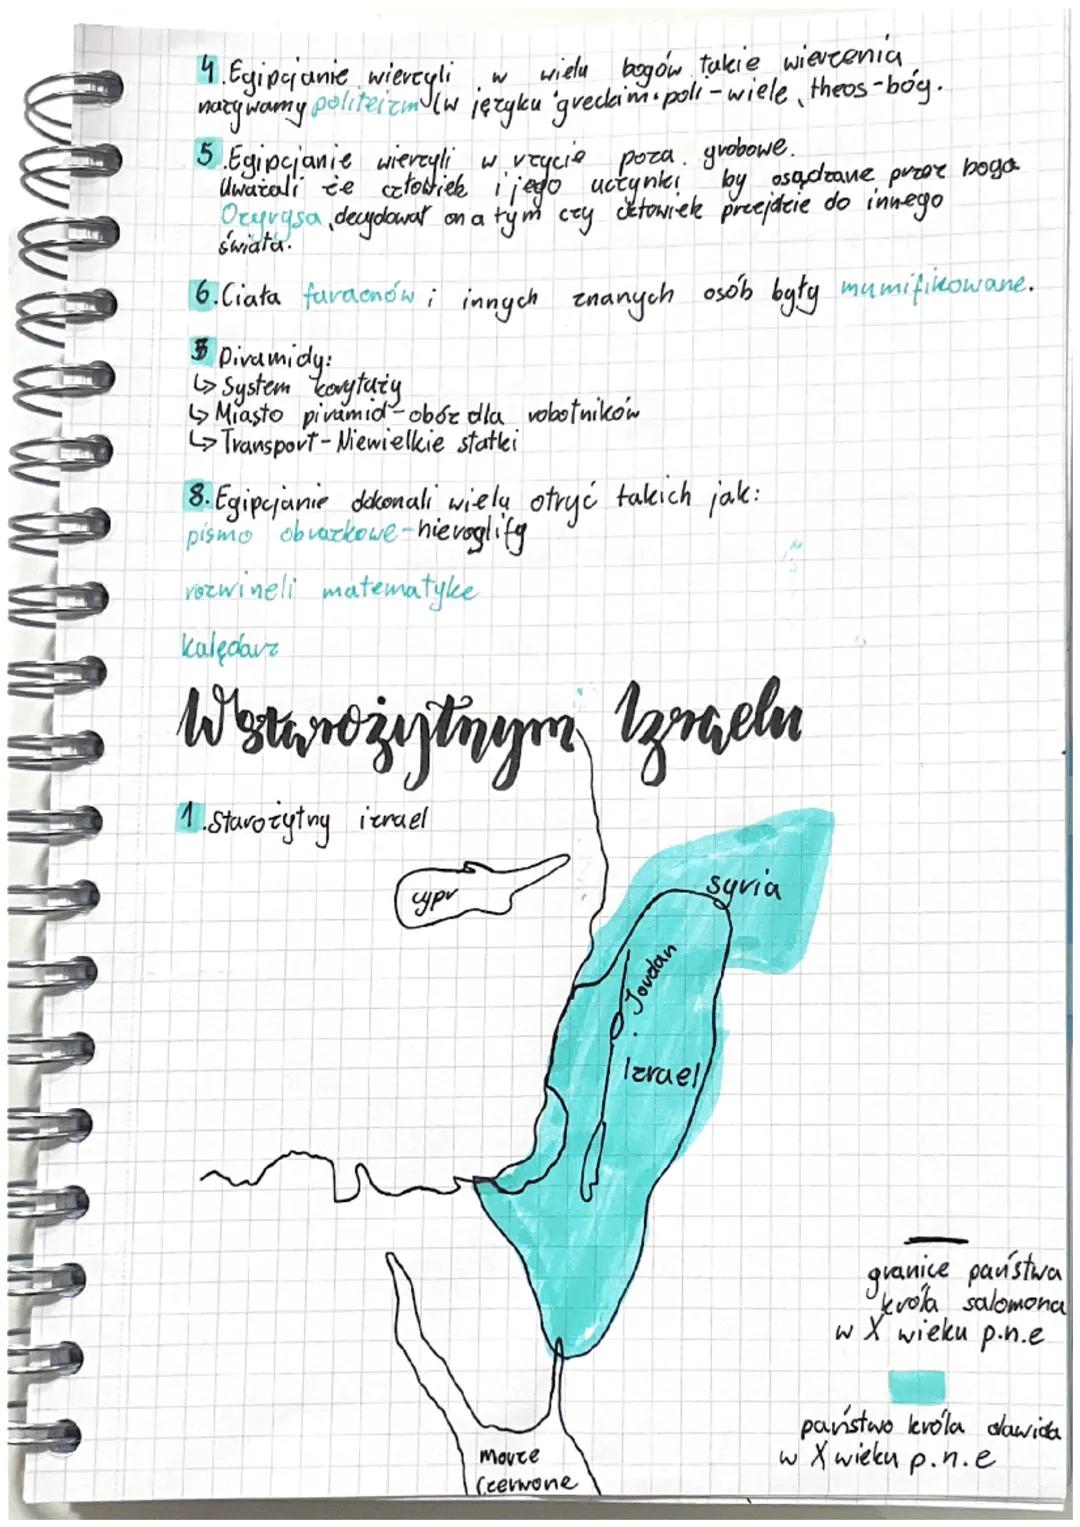 4.Egipcjanie wierzyli w wielu bogów takie wierzenia
nazywamy politeizm (w języku greckim: poli-wiele, theos-bóg.
5.Egipcjanie wierzyli w rzycie poza grobowe.
Uważali że człowiek i jego uczynki by osądzane przez boga
Ozyrysa, decydował on a tym czy człowiek przejdzie do innego
świata.
6.Ciała faraonów i innych znanych osób były mumifikowane.
Piramidy:
↳ System korytaży
↳ Miasto piramid-obóz dla robotników
↳ Transport-Niewielkie statki
8.Egipcjanie dokonali wielu otryć takich jak:
pismo obrazkowe-hieroglify
rozwineli matematyke
kalędarz
W starożytnym Izraelu
1.Starożytny izrael
cypr
syria
Jordan
Izrael
granice państwa
króla salomona
w X wieku p.n.e
państwo króla dawida
w X wieku p.n.e
morze
czerwone